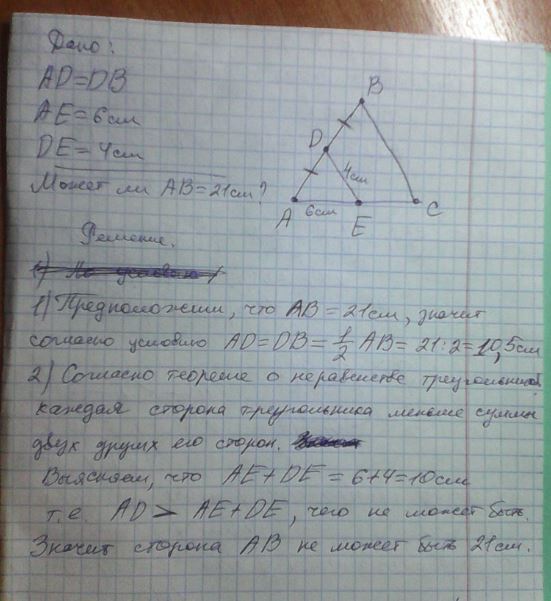 Дано:
AD=DB
AE=6см
DE=4см
Может ли AB=21см?
B
D
4см
A
6см
E
C
Решение.
1) По условию
1) Предположим, что AB=21см, значит
согласно условию AD=DB=1/2 AB=21:2=10,5см
2) Согласно теореме о неравенстве треугольника
каждая сторона треугольника меньше суммы
двух других его сторон.
Выясняем, что AE+DE=6+4=10см
т.е. AD > AE+DE, чего не может быть.
Значит сторона AB не может быть 21см.